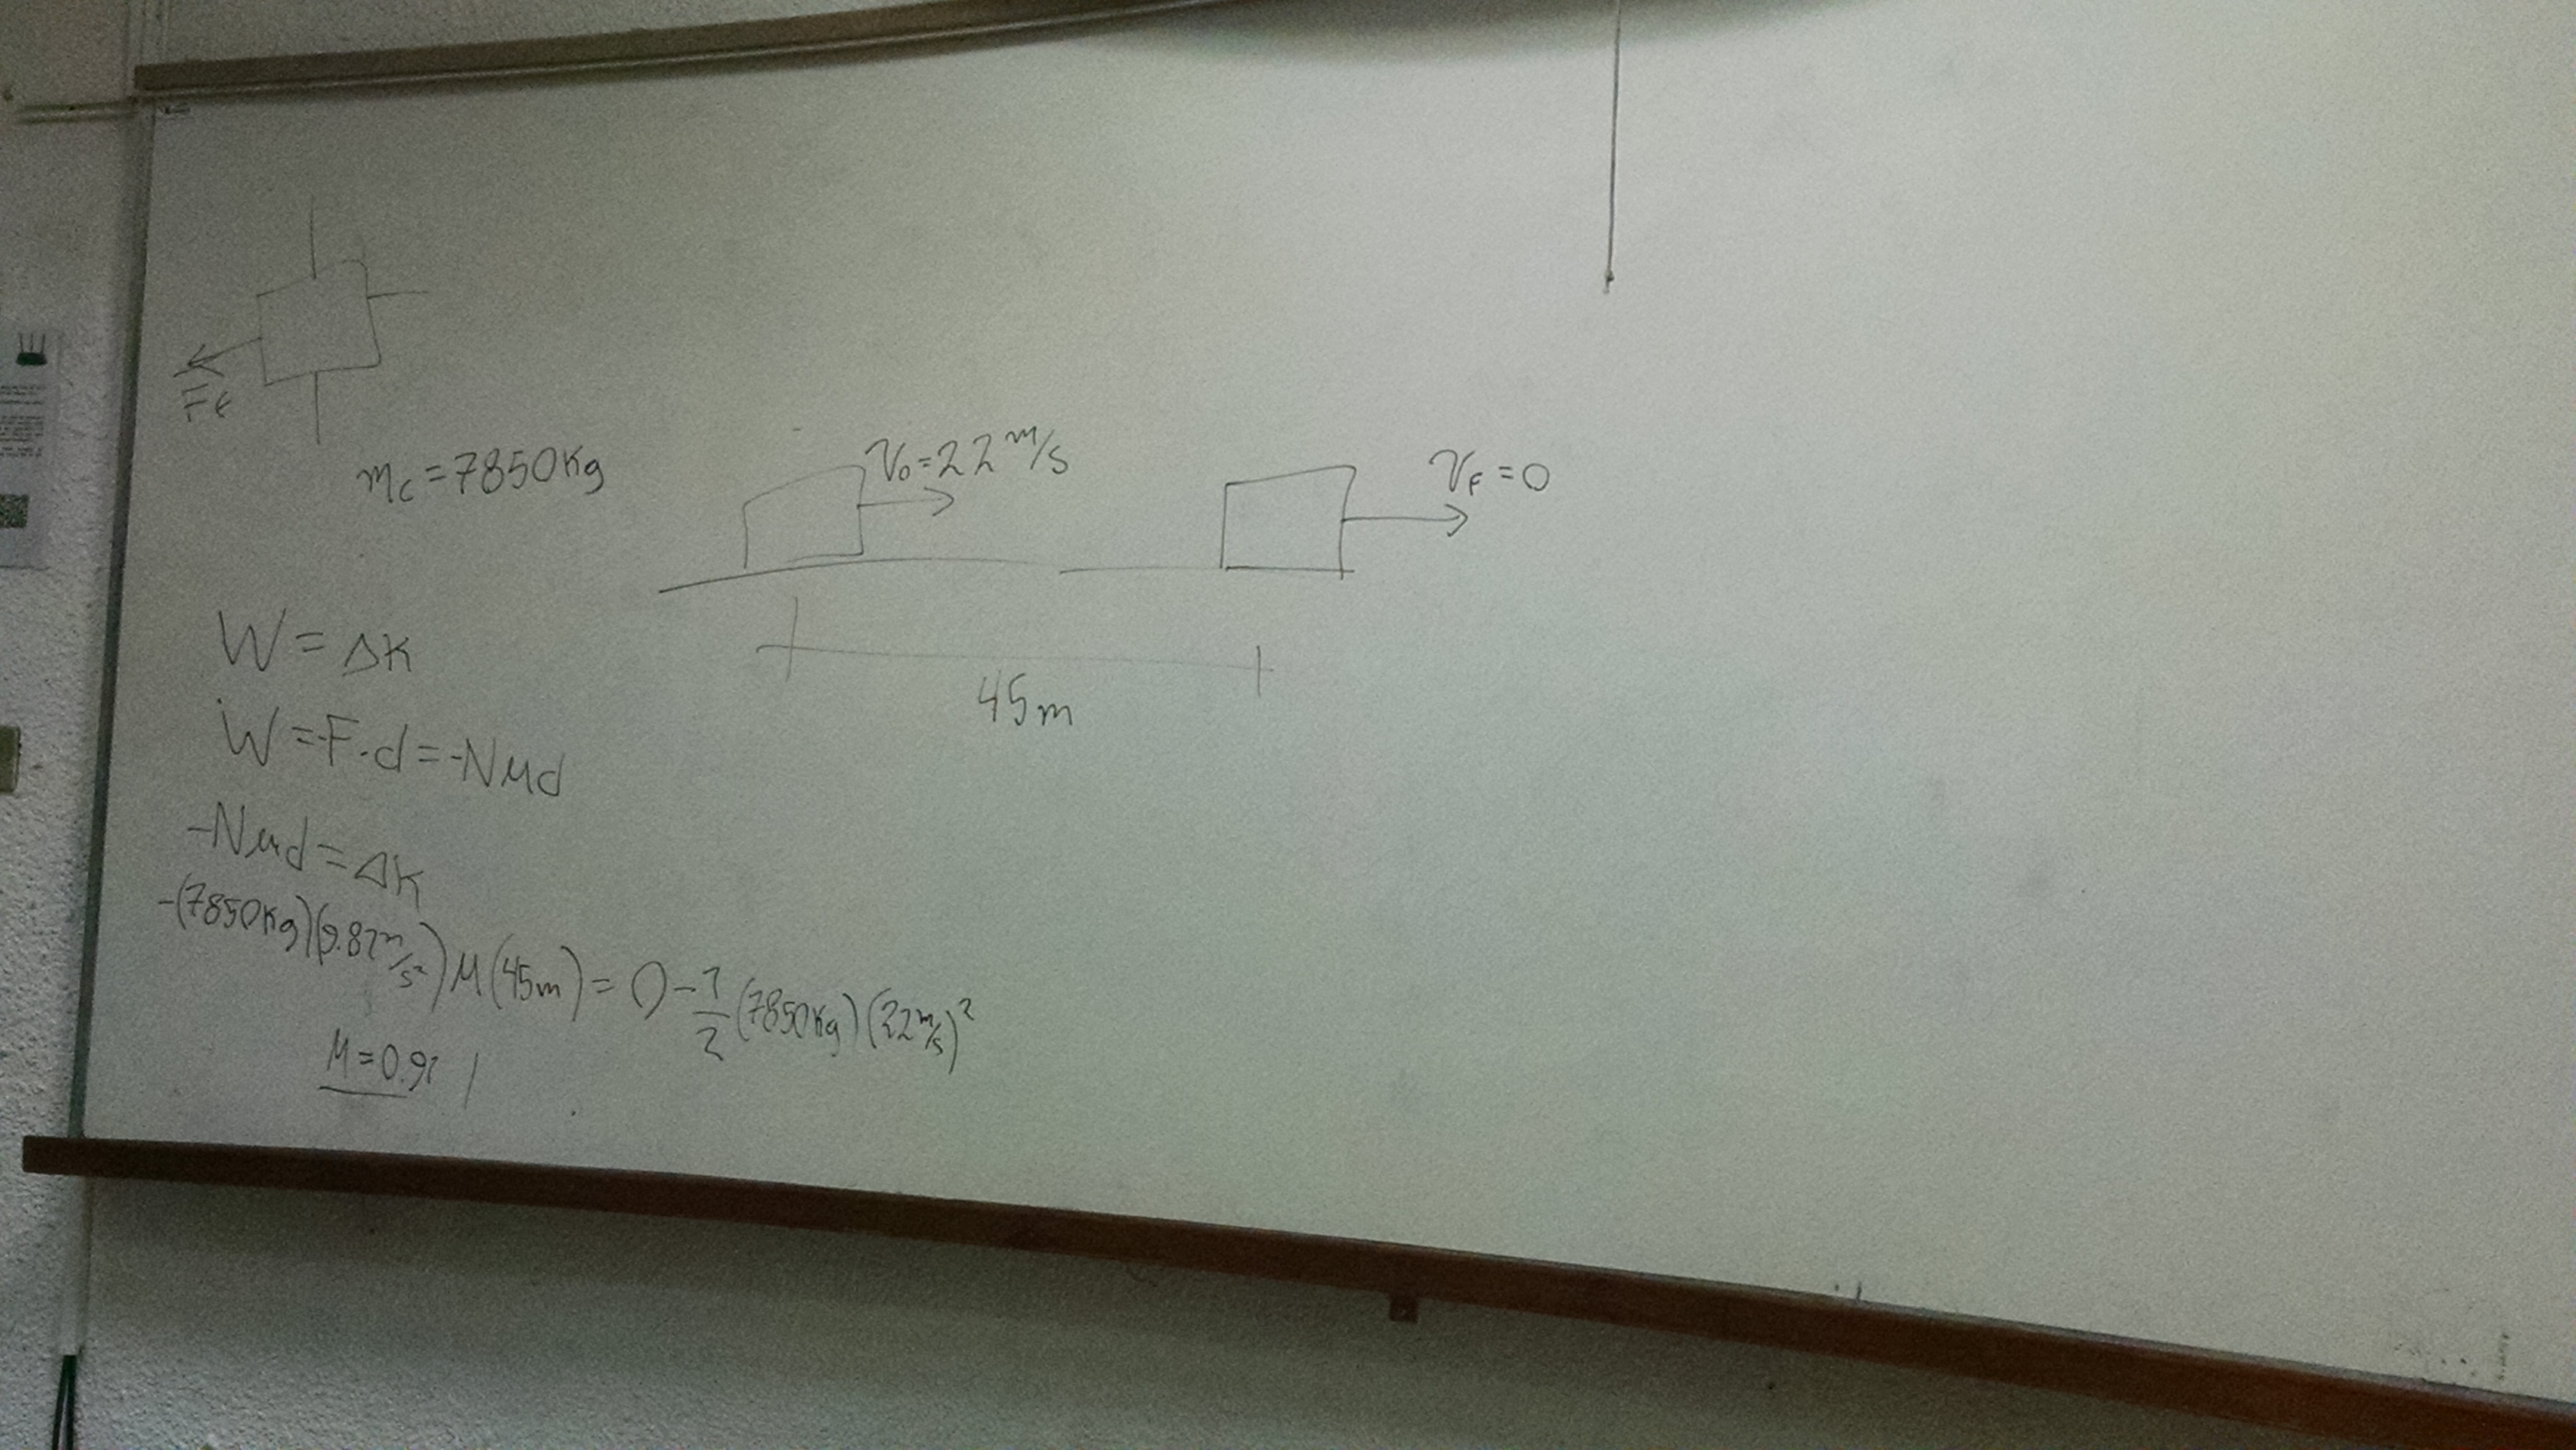 Ff
mc=7850Kg
V₀=22 m/s
VF=0
45m
W=ΔK
W=-F·d=-Nμd
-Nμd=ΔK
-(7850Kg)(9.81m/s²)μ(45m)=0-1/2(7850Kg)(22m/s)²